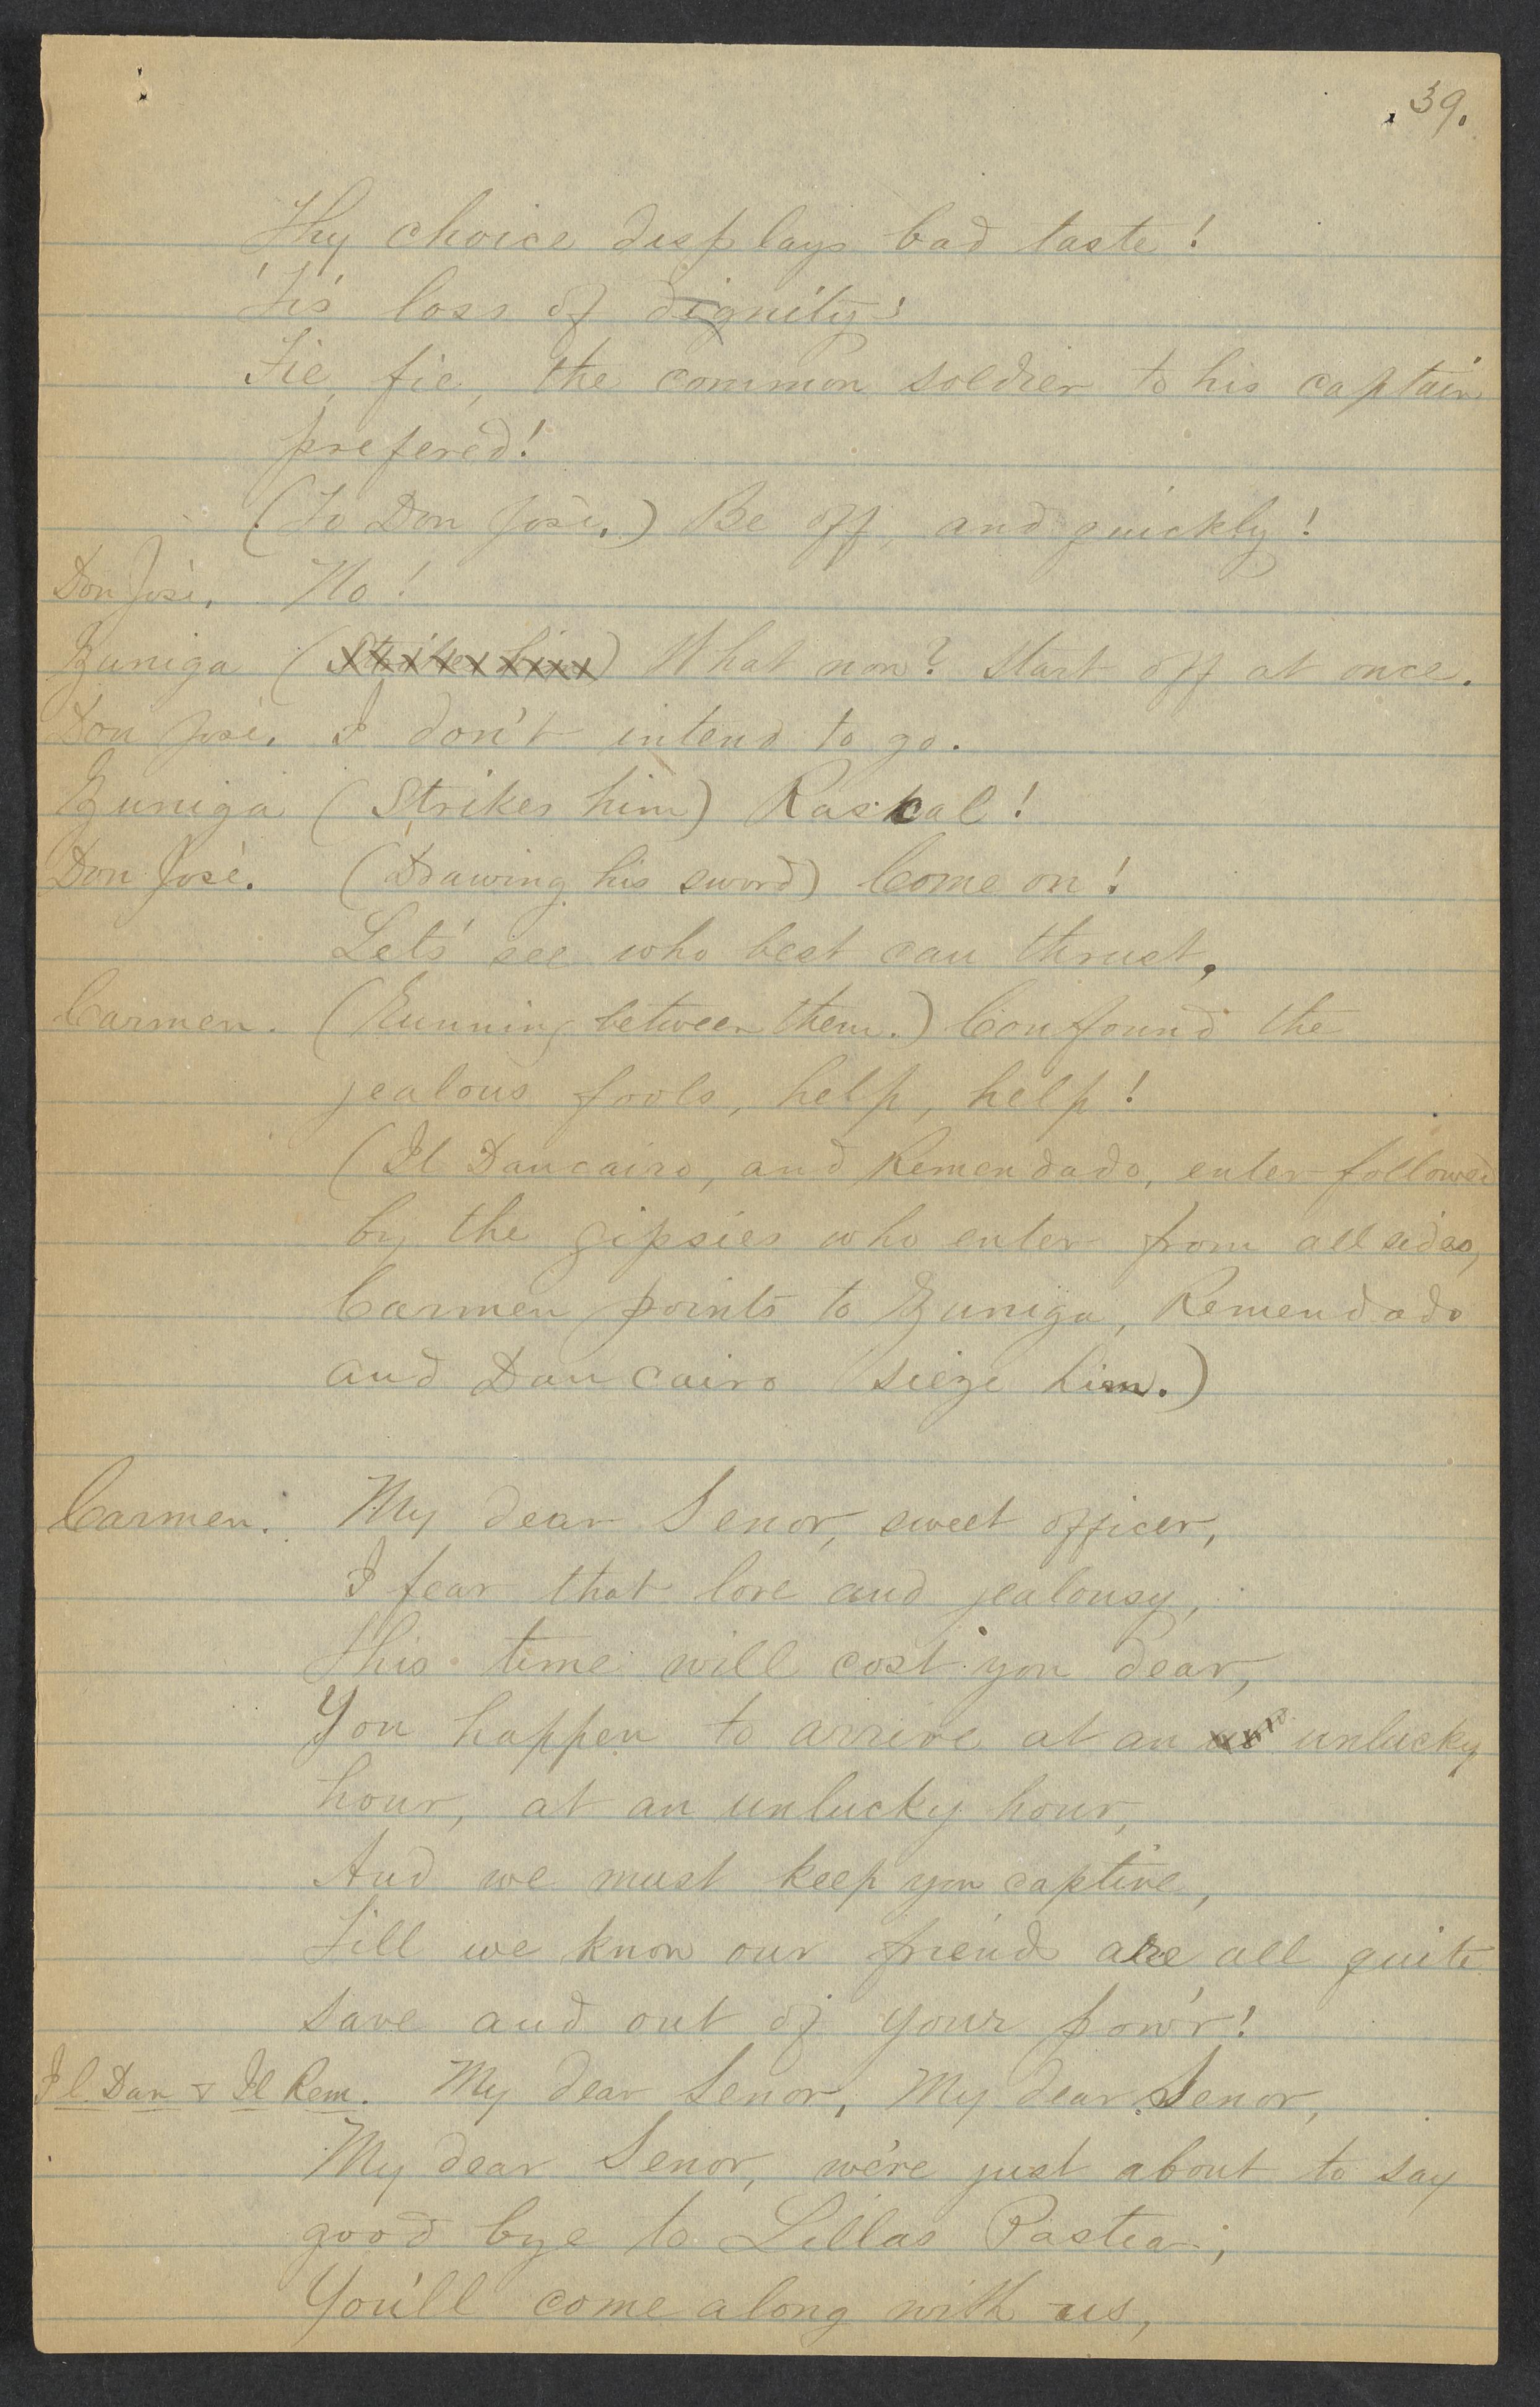 39.
Thy choice displays bad taste!
'Tis loss of dignity!
Fie, fie, the common soldier to his captain
prefered!
(To Don José.) Be off, and quickly!
Don José. No!
Zuniga (Strikes him) What now? Start off at once.
Don José. I don't intend to go.
Zuniga (Strikes him) Rascal!
Don José. (Drawing his sword) Come on!
Let's see who best can thrust.
Carmen. (Running between them.) Confound the
jealous fools, help, help!
(Il Dancairo, and Remendado, enter followed
by the gipsies who enter from all sides,
Carmen points to Zuniga, Remendado
and Dancairo siege him.)
Carmen. My dear Senor, sweet officer,
I fear that love and jealousy,
This time will cost you dear,
You happen to arrive at an unlucky
hour, at an unlucky hour,
And we must keep you captive,
Till we know our friends are all quite
save and out of your pow'r!
Il Dan & Il Rem. My dear Senor, My dear Senor,
My dear Senor, we're just about to say
good bye to Lillas Pastia;
You'll come along with us,